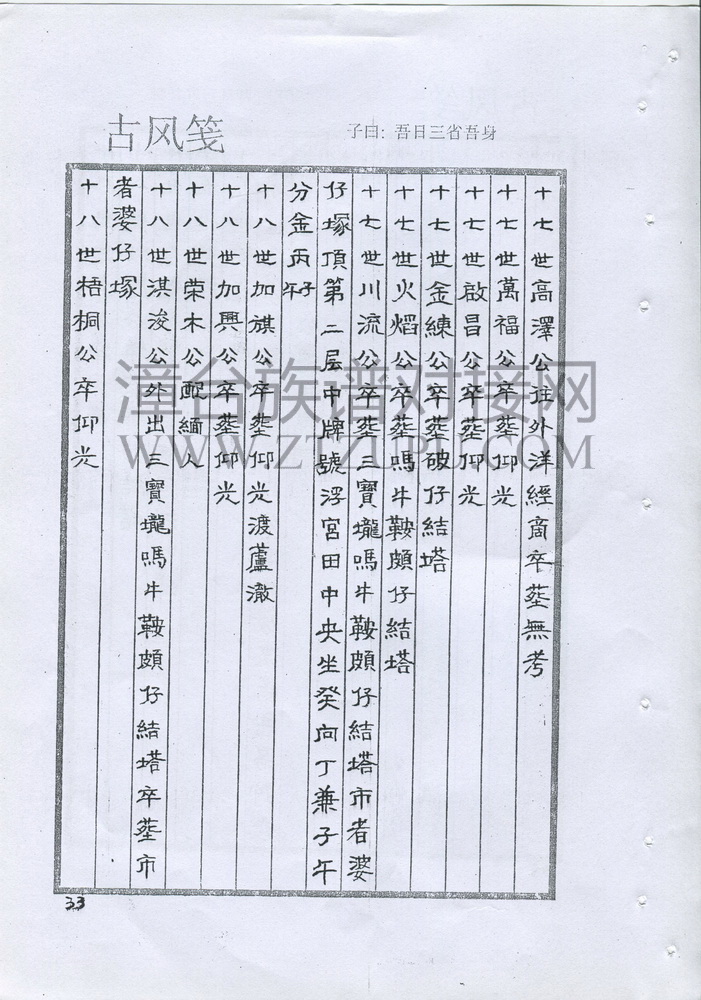 古风笺
子曰：吾日三省吾身
十七世高澤公往外洋經商卒塟無考
十七世萬福公卒塟仰光
十七世啟昌公卒塟仰光
十七世金練公卒塟破仔結塔
十七世火熖公卒塟嗎牛鞍頗仔結塔
十七世川流公卒塟三寶壠嗎牛鞍頗仔結塔市者婆
仔塚頂第二层中牌號浮宮田中央坐癸向丁兼子午
分金丙子午
十八世加旗公卒塟仰光渡蘆澈
十八世加興公卒塟仰光
十八世荣木公配緬人
十八世淇浚公外出三寶壠嗎牛鞍頗仔結塔卒塟市
者婆仔塚
十八世梧桐公卒仰光
33
漳台族谱对接网
WWW.ZTZUPU.COM